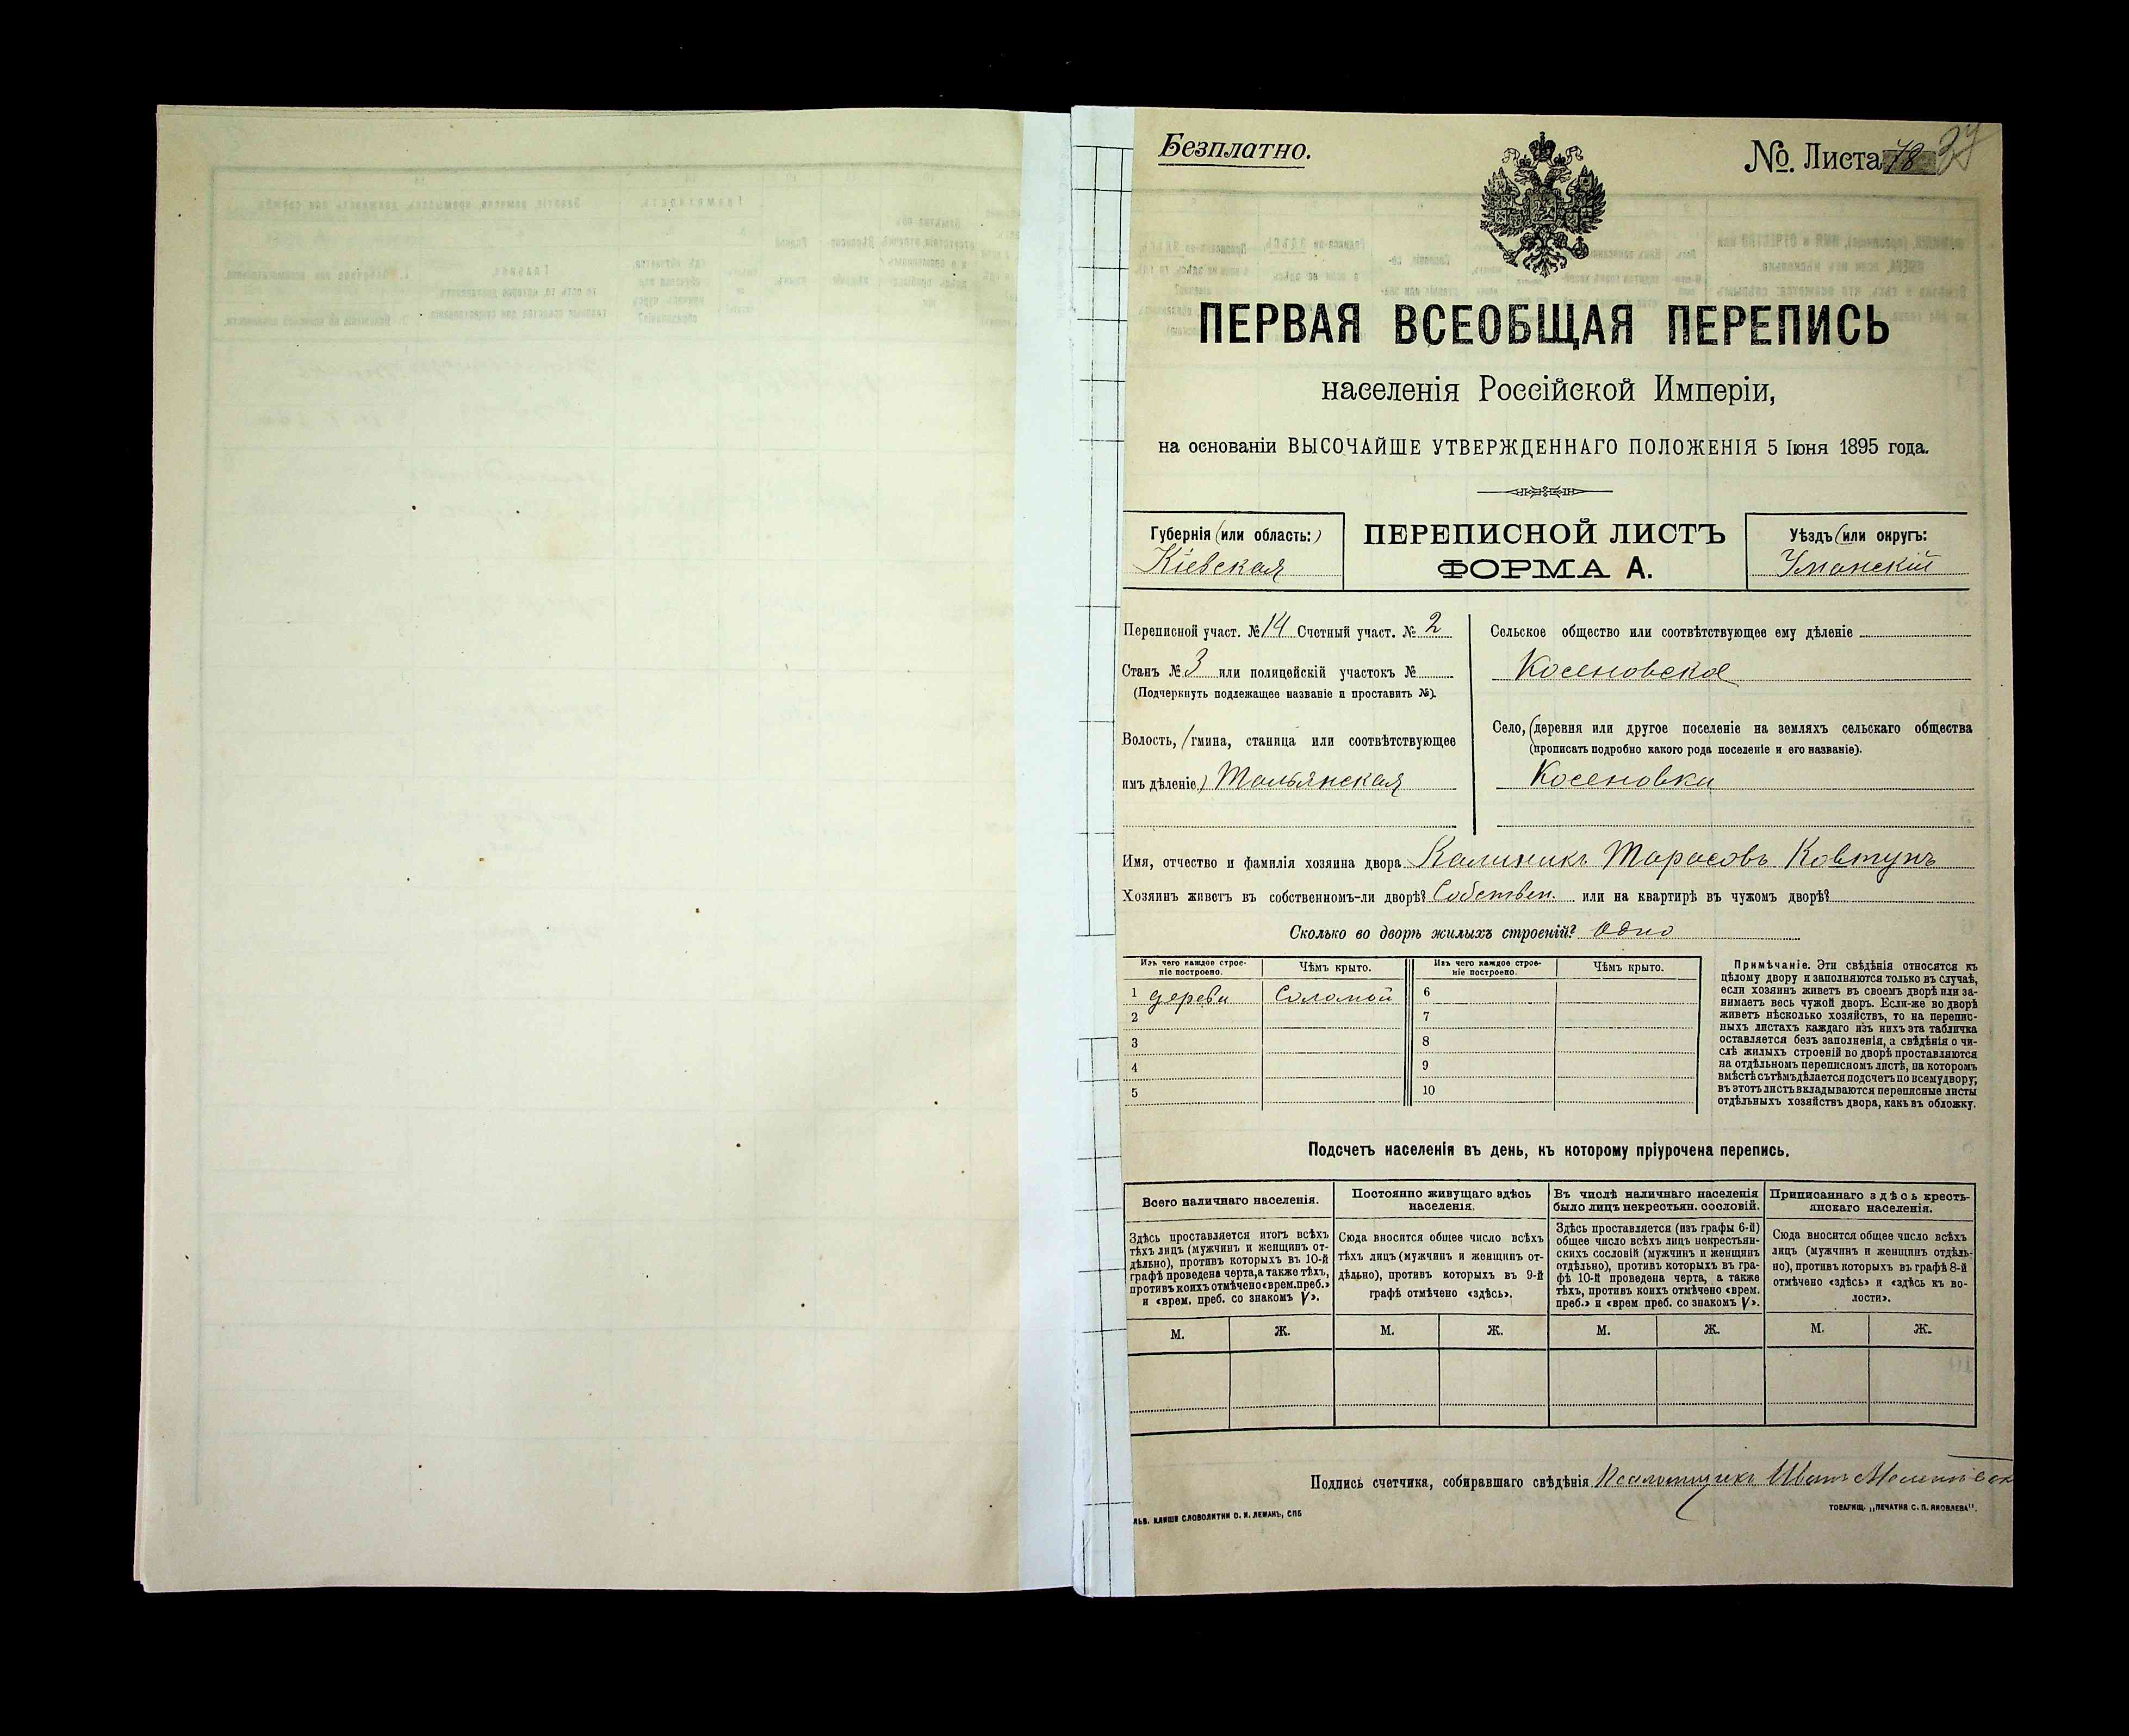 Безплатно.
№. Листа 78
39
ПЕРВАЯ ВСЕОБЩАЯ ПЕРЕПИСЬ
населенія Россійской Имперіи,
на основаніи ВЫСОЧАЙШЕ УТВЕРЖДЕННАГО ПОЛОЖЕНІЯ 5 Іюня 1895 года.
Губернія (или область:)
Кіевская
ПЕРЕПИСНОЙ ЛИСТЪ
ФОРМА А.
Уѣздъ (или округъ:
Уманскій
Переписной участ. № 14 Счетный участ. № 2
Станъ № 3 или полицейскій участокъ №
(Подчеркнуть подлежащее названіе и проставить №).
Волость, (гмина, станица или соотвѣтствующее
имъ дѣленіе) Тальянская
Сельское общество или соотвѣтствующее ему дѣленіе
Косеновское
Село, (деревня или другое поселеніе на земляхъ сельскаго общества
(прописать подробно какого рода поселеніе и его названіе).
Косеновка
Имя, отчество и фамилія хозяина двора Калиникъ Тарасовъ Ковтунъ
Хозяинъ живетъ въ собственномъ-ли дворѣ? Собствен. или на квартирѣ въ чужомъ дворѣ?
Сколько во дворѣ жилыхъ строеній? Одно
Изъ чего каждое строе-
ніе построено.
Чѣмъ крыто.
Изъ чего каждое строе-
ніе построено.
Чѣмъ крыто.
1 дерева Соломой 6
2 7
3 8
4 9
5 10
Примѣчаніе. Эти свѣдѣнія относятся къ
цѣлому двору и заполняются только въ случаѣ,
если хозяинъ живетъ въ своемъ дворѣ или за-
нимаетъ весь чужой дворъ. Если-же во дворѣ
живетъ нѣсколько хозяйствъ, то на перепис-
ныхъ листахъ каждаго изъ нихъ эта табличка
оставляется безъ заполненія, а свѣдѣнія о чи-
слѣ жилыхъ строеній во дворѣ проставляются
на отдѣльномъ переписномъ листѣ, на которомъ
вмѣстѣ съ тѣмъ дѣлается подсчетъ по всему двору;
въ этотъ листъ вкладываются переписные листы
отдѣльныхъ хозяйствъ двора, какъ въ обложку.
Подсчетъ населенія въ день, къ которому пріурочена перепись.
Всего наличнаго населенія.
Здѣсь проставляется итогъ всѣхъ
тѣхъ лицъ (мужчинъ и женщинъ от-
дѣльно), противъ которыхъ въ 10-й
графѣ проведена черта, а также тѣхъ,
противъ коихъ отмѣчено «врем. преб.»
и «врем. преб. со знакомъ V».
М. Ж.
Постоянно живущаго здѣсь
населенія.
Сюда вносится общее число всѣхъ
тѣхъ лицъ (мужчинъ и женщинъ от-
дѣльно), противъ которыхъ въ 9-й
графѣ отмѣчено «здѣсь».
М. Ж.
Въ числѣ наличнаго населенія
было лицъ некрестьян. сословій.
Здѣсь проставляется (изъ графы 6-й)
общее число всѣхъ лицъ некрестьян-
скихъ сословій (мужчинъ и женщинъ
отдѣльно), противъ которыхъ въ гра-
фѣ 10-й проведена черта, а также
тѣхъ, противъ коихъ отмѣчено «врем.
преб.» и «врем преб. со знакомъ V».
М. Ж.
Приписаннаго здѣсь кресть-
янскаго населенія.
Сюда вносится общее число всѣхъ
лицъ (мужчинъ и женщинъ отдѣль-
но), противъ которыхъ въ графѣ 8-й
отмѣчено «здѣсь» и «здѣсь къ во-
лости».
М. Ж.
Подпись счетчика, собиравшаго свѣдѣнія Псаломщикъ Иванъ
ЛЬВ. КЛИШЕ СЛОВОЛИТНИ О. И. ЛЕМАНЪ, СПБ
ТОВАРИЩ. „ПЕЧАТНЯ С. П. ЯКОВЛЕВА".